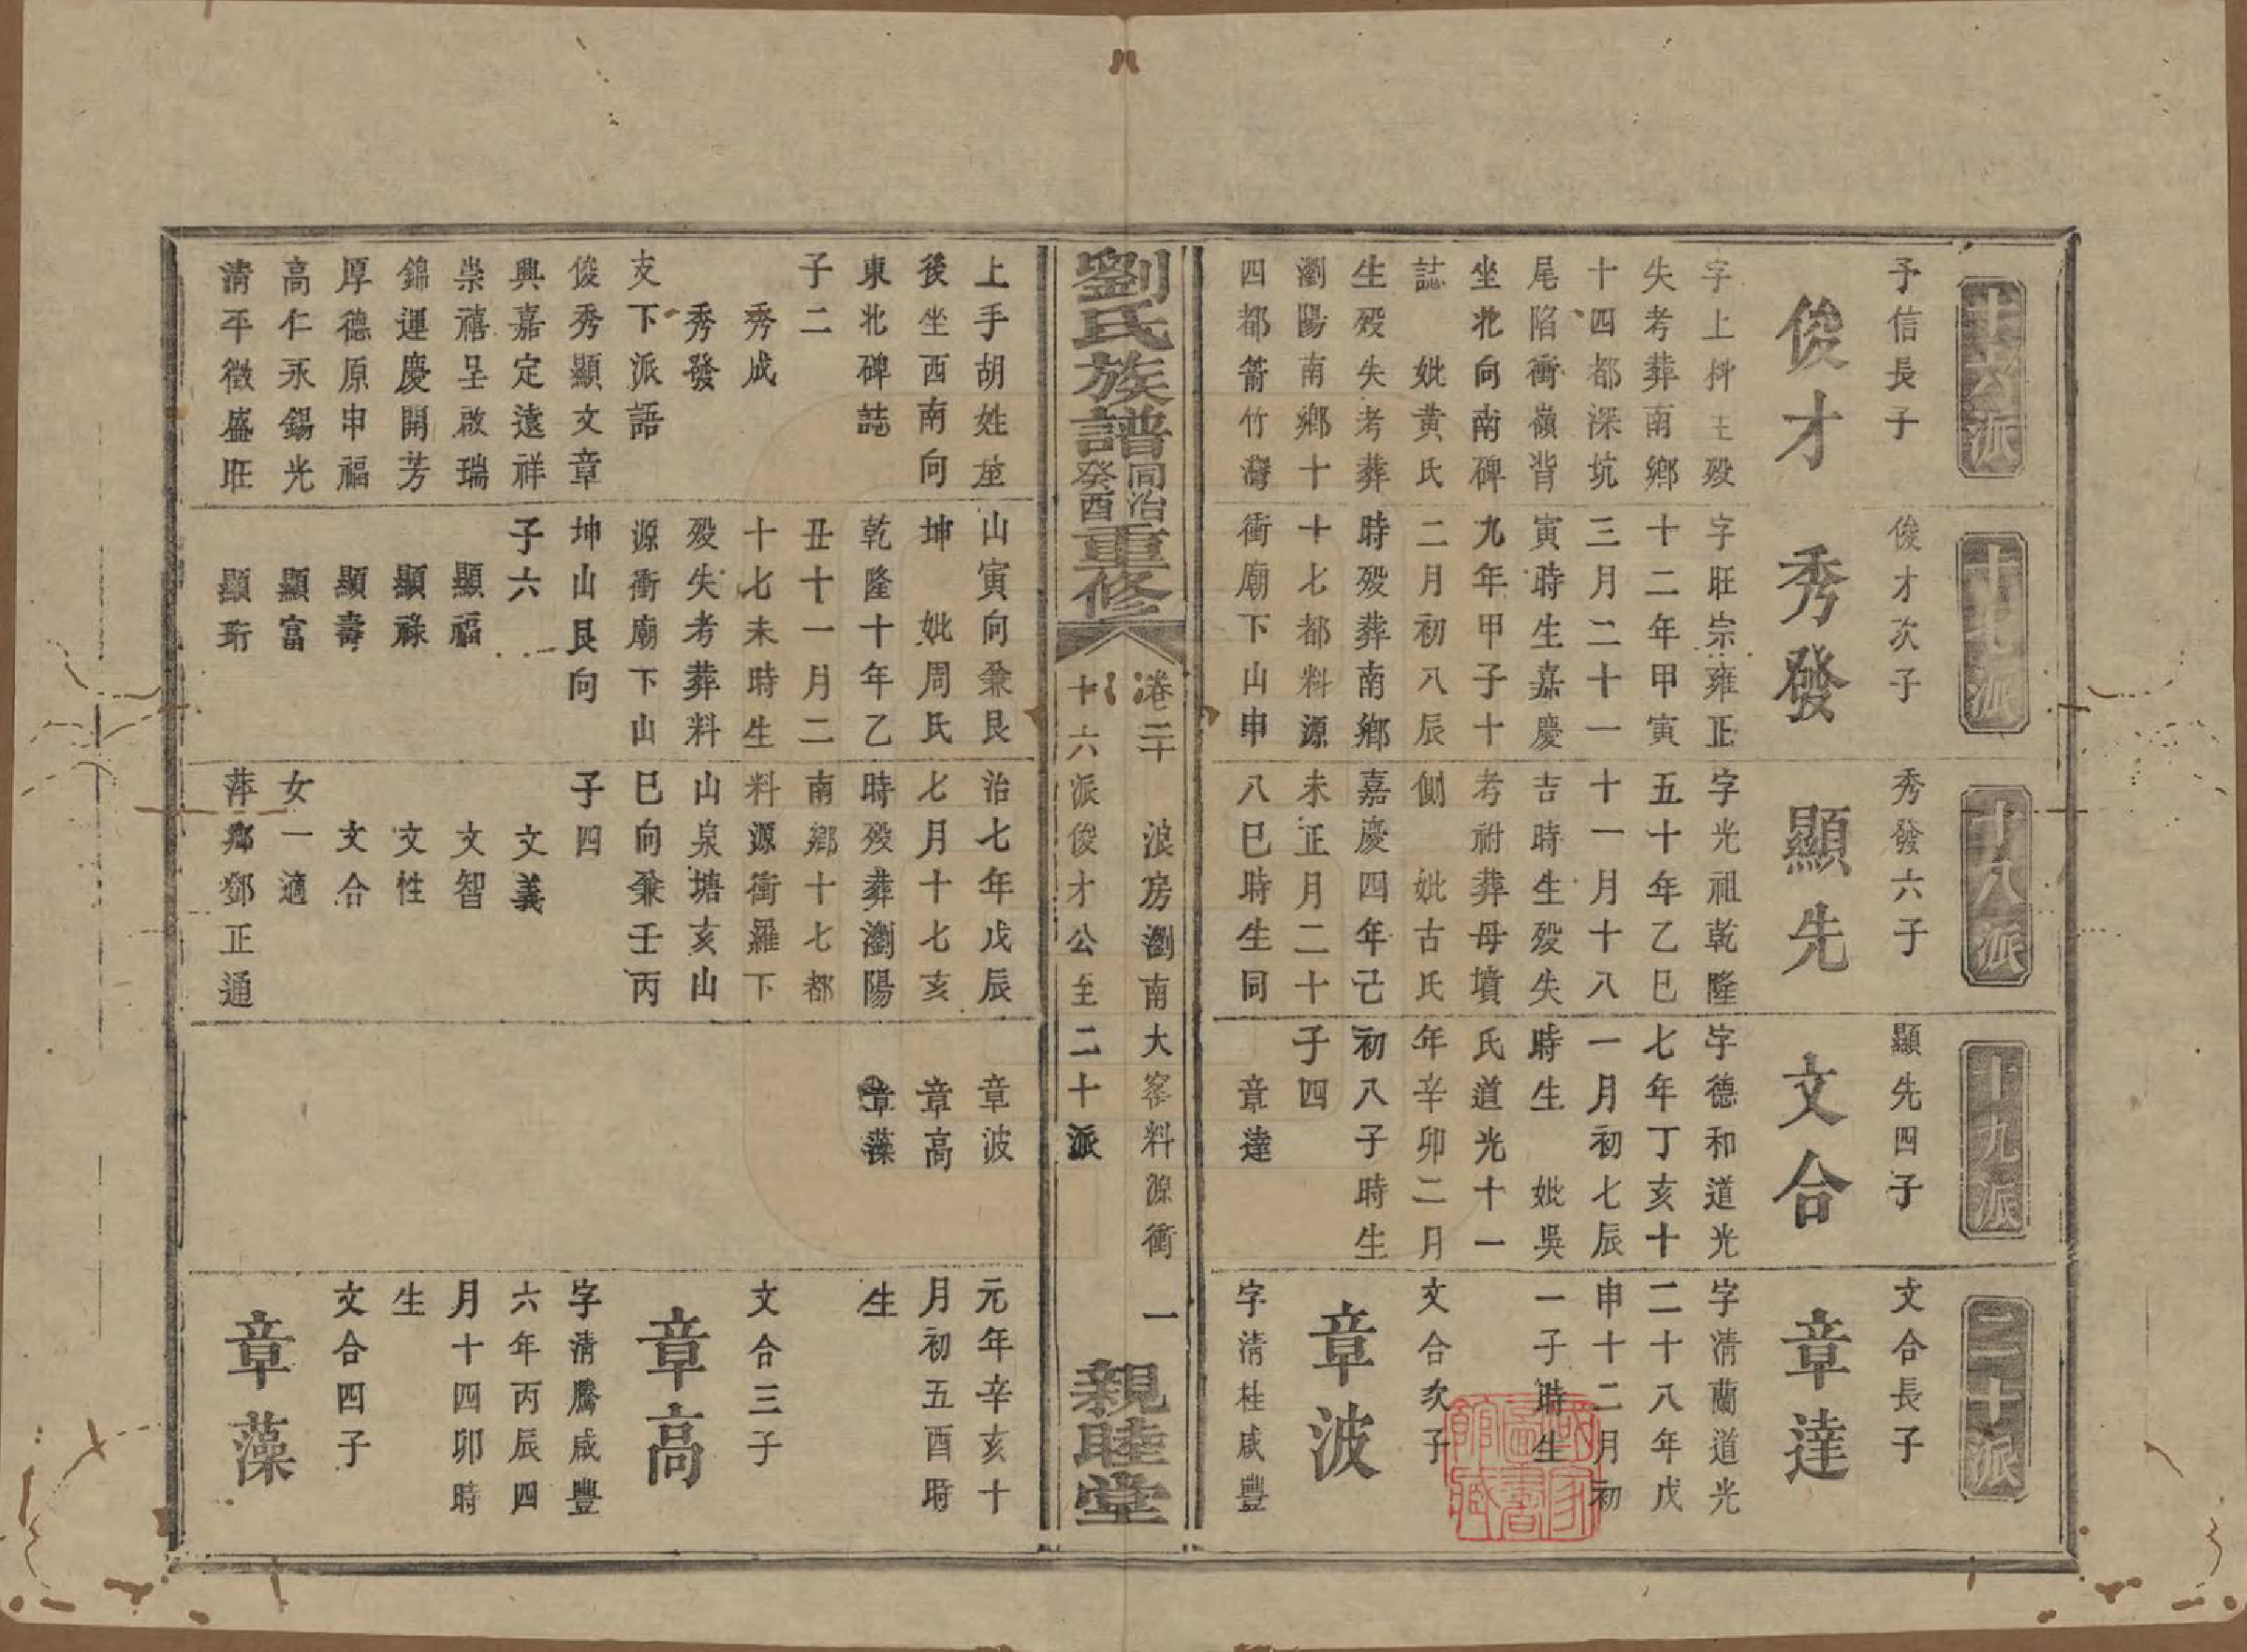 十六派
予信長子
俊才
字上拱生殁
失考葬南鄉
十四都深坑
尾陷衝嶺背
坐北向南碑
誌　妣黃氏
生殁失考葬
瀏陽南鄉十
四都箭竹灣
上手胡姓塋
後坐西南向
東北碑誌
子二
秀成
秀發
支下派語
俊秀顯文章
興嘉定遠祥
崇禧呈啟瑞
錦運慶開芳
厚德原申福
高仁永錫光
清平徵盛旺
十七派
俊才次子
秀發
字旺宗雍正
十二年甲寅
三月二十一
寅時生嘉慶
九年甲子十
二月初八辰
時殁葬南鄉
十七都料源
衝廟下山申
山寅向兼艮
坤　妣周氏
乾隆十年乙
丑十一月二
十七未時生
殁失考葬料
源衝廟下山
坤山艮向
子六
顯福
顯祿
顯壽
顯富
顯珩
十八派
秀發六子
顯先
字光祖乾隆
五十年乙巳
十一月十八
吉時生殁失
考祔葬母墳
側　妣古氏
嘉慶四年己
未正月二十
八巳時生同
治七年戊辰
七月十七亥
時殁葬瀏陽
南鄉十七都
料源衝羅下
山泉塘亥山
巳向兼壬丙
子四
文義
文智
文性
文合
女一適
萍鄉鄧正通
十九派
顯先四子
文合
字德和道光
七年丁亥十
一月初七辰
時生　妣吳
氏道光十一
年辛卯二月
初八子時生
子四
章達
章波
章高
章藻
二十派
文合長子
章達
字清蘭道光
二十八年戊
申十二月初
一子時生
文合次子
章波
字清桂咸豐
元年辛亥十
月初五酉時
生
文合三子
章高
字清騰咸豐
六年丙辰四
月十四卯時
生
文合四子
章藻
劉氏族譜
同治
癸酉
重修
卷二十　浪房瀏南大窰料源衝　一
十六派俊才公至二十派
親睦堂
國家圖書館藏